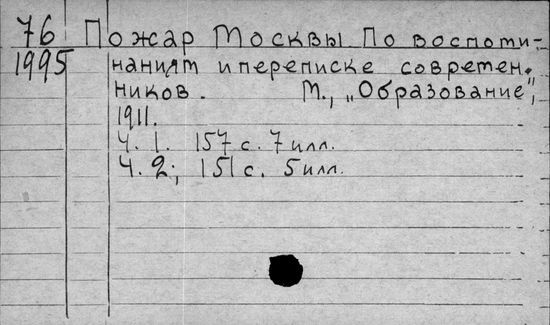 76 Пожар Москвы По воспоми-
1995 наниям и переписке современ-
ников. М., „Образование",
1911.
Ч. 1. 157 с. 7 илл.
Ч. 2; 151 с. 5 илл.